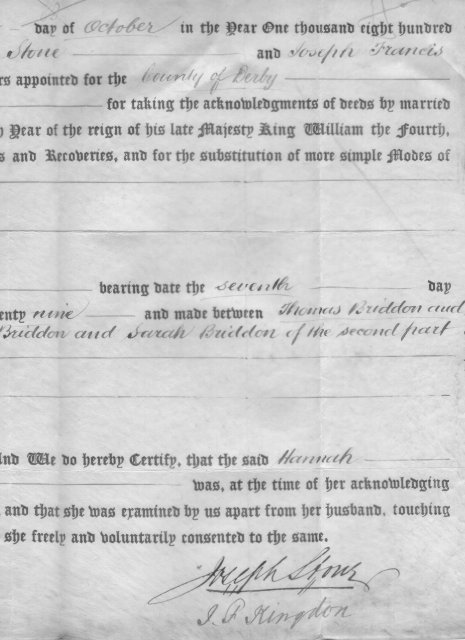 day of October in the Year One thousand eight hundred
Stone and Joseph Francis
rs appointed for the County of Derby
for taking the acknowledgments of deeds by married
y Year of the reign of his late Majesty King William the Fourth,
s and Recoveries, and for the substitution of more simple Modes of
bearing date the seventh day
enty nine and made between Thomas Briddon and
Briddon and Sarah Briddon of the second part
And We do hereby Certify, that the said Hannah
was, at the time of her acknowledging
and that she was examined by us apart from her husband, touching
she freely and voluntarily consented to the same.
Joseph Stone
J. F. Kingdon